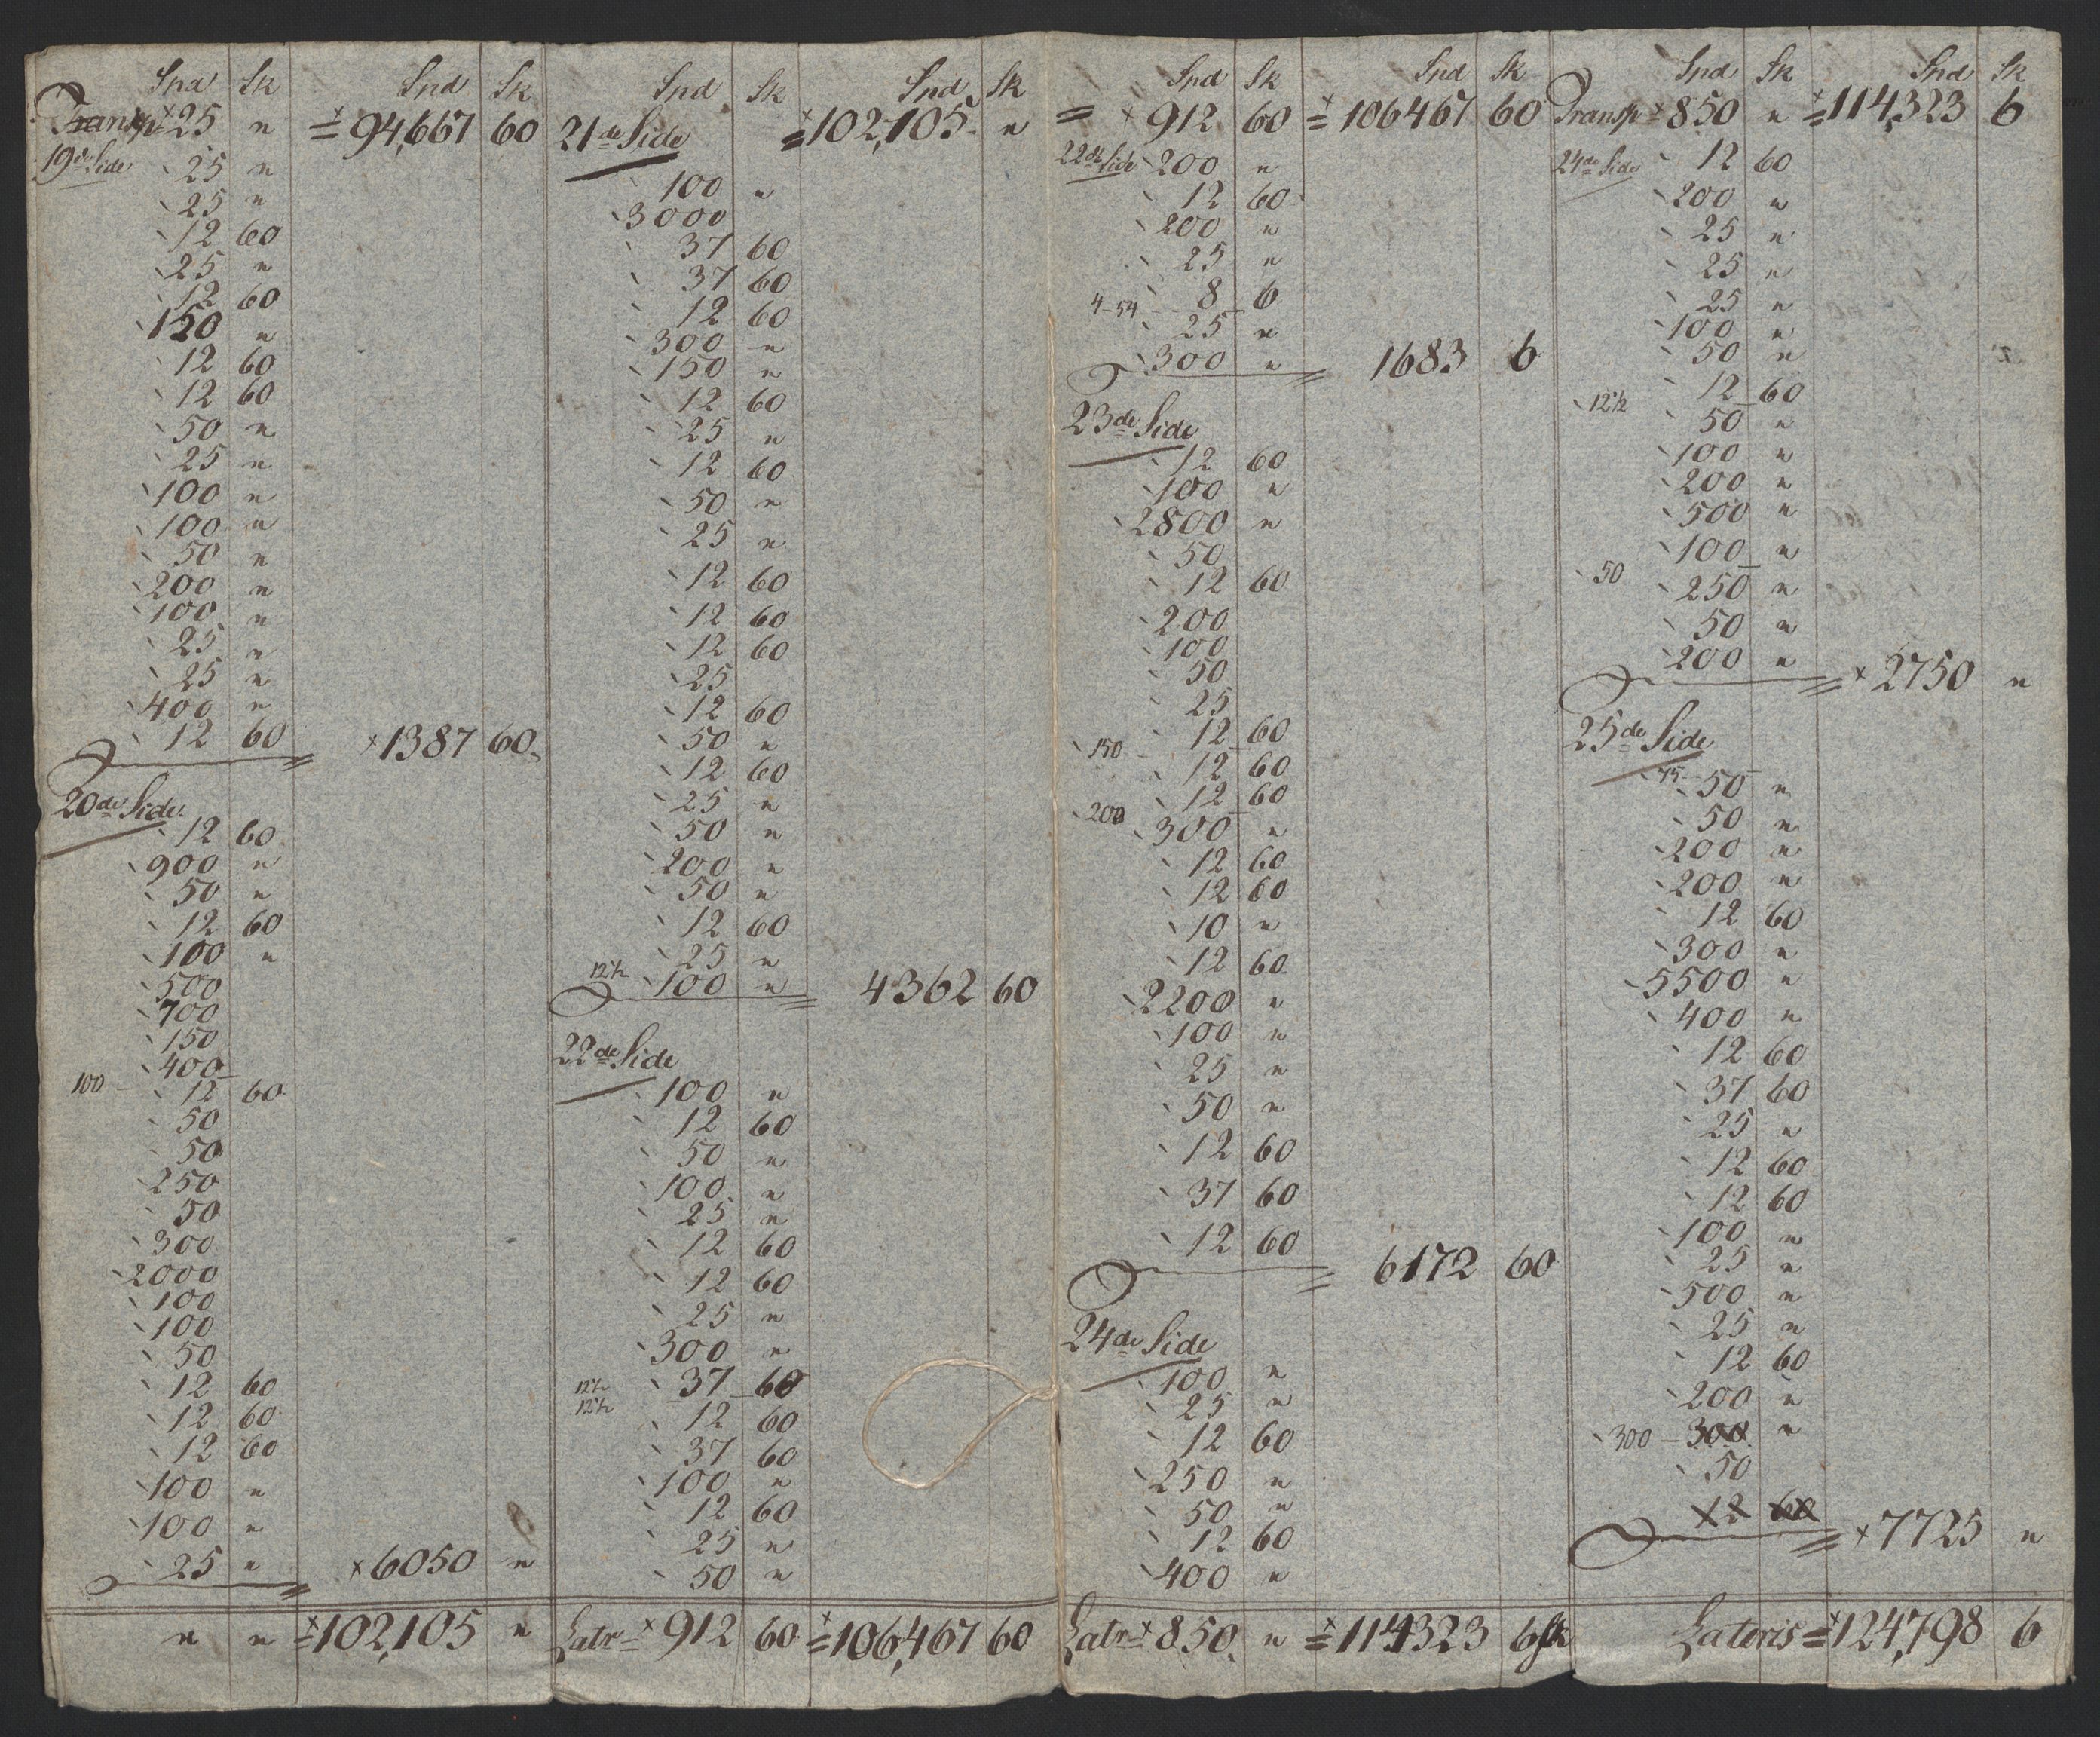 Spd Sk Spd Sk
Transp × 25 " = × 94,667 60
19de Side 25 "
25 "
12 60
25 "
12 60
150 "
12 60
12 60
50 "
25 "
100 "
100 "
50 "
200 "
100 "
25 "
25 "
400 "
12 60 × 1387 60
20de Side
12 60
900 "
50 "
12 60
100 "
500
700
150
400
100 – 12 60
50
50
250
50
300
2000
100
100
50
12 60
12 60
12 60
100 "
100 "
25 " × 6050 "
" " = × 102,105 "
Spd Sk Spd Sk
21de Side = × 102,105 "
100 "
3000
37 60
37 60
12 60
300 "
150 "
12 60
25 "
12 60
50 "
25 "
12 60
12 60
12 60
25
12 60
50 "
12 60
25 "
50 "
200 "
50 "
12 60
25 "
12½ 100 " 4362 60
22de Side
100 "
12 60
50 "
100 "
25 "
12 60
12 60
25 "
300 "
12½ 37 60
12½ 12 60
37 60
100 "
12 60
25 "
50 "
Latr = × 912 60 = × 106,467 60
Spd Sk Spd Sk
= × 912 60 = × 106467 60
22de Side 200 "
12 60
200 "
25 "
4–54 8 6
25 "
300 " 1683 6
23de Side
12 60
100 "
2800 "
50
12 60
200
100
50
25
12 60
150 – 12 60
12 60
200 300 "
12 60
12 60
10 "
12 60
2200 "
100 "
25 "
50 "
12 60
37 60
12 60 6172 60
24de Side
100 "
25 "
12 60
250 "
50 "
12 60
400 "
Latr = × 850. " = × 114323 6 sk
Spd Sk Spd Sk
Transp × 850 " = × 114,323 6
24de Side 12 60
200 "
25 "
25 "
25 "
100 "
50 "
12 60
12½ 50 "
100 "
200 "
500 "
100 "
50 250 "
50 "
200 " × 2750 "
25de Side
75 – 50 "
50 "
200 "
200 "
12 60
300 "
5500 "
400 "
12 60
37 60
25 "
12 60
12 60
100 "
25 "
500 "
25 "
12 60
200 "
300 – 300 "
50
12 60
× 7725 "
Lateris = × 124,798 6